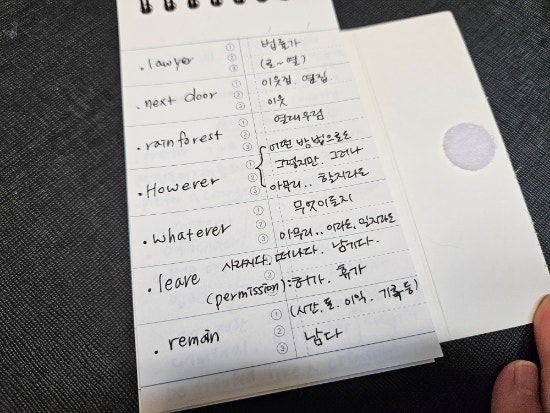 . lawyer ① 법률가
②
③ (로~열)
. next door ① 이웃집. 옆집
②
③ 이웃
. rain forest ① 열대우림
②
③
{ 어떤 방법으로도
. However ① 그렇지만. 그러나
②
③ 아무리.. 할지라도
① 무엇이든지
. whatever ②
③ 아무리.. 이라도, 일지라도
. leave 사라지다. 떠나다. 남기다.
(permission) : 허가. 휴가
① (시간. 돈. 이익. 등)
. remain ②
③ 남다